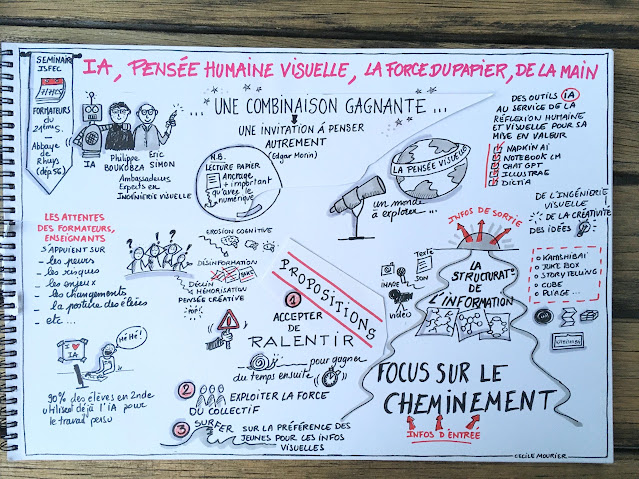 SEMINAIRE
ISFEC
FORMATEURS
du
2nd
Abbaye
de
Rhuys
(dép.56)
IA, PENSÉE HUMAINE VISUELLE, LA FORCE DU PAPIER, DE LA MAIN
IA
Philippe
BOUKOBZA
Eric
SIMON
Ambassadeurs
Experts en
INGÉNIERIE VISUELLE
... UNE COMBINAISON GAGNANTE ...
UNE INVITATION À PENSER
AUTREMENT
(Edgar Morin)
N.B.
LECTURE PAPIER
Ancrage
+ important
qu'avec le
numérique
LA PENSÉE VISUELLE
un monde
à explorer ...
DES OUTILS IA
AU SERVICE DE LA
RÉFLEXION HUMAINE
ET VISUELLE POUR SA
MISE EN VALEUR
NAPKIN AI
NOTEBOOK LM
CHAT GPT
ILLUSTRAE
DICTIA
DE L'INGÉNIERIE
VISUELLE
DE LA CRÉATIVITÉ
DES IDÉES
KAMISHIBAÏ
JUKE BOX
STORYTELLING
CUBE
PLIAGE ...
LES ATTENTES
DES FORMATEURS,
ENSEIGNANTS
S'APPUIENT SUR
- les peurs
- les risques
- les enjeux
- les changements
- la posture des élèves
- etc ...
EROSION COGNITIVE
DÉSINFORMATION
FAKE
DÉCLIN
MÉMORISATION
PENSÉE CRÉATIVE
I ♥
IA
HÉHÉ!
90% des élèves en 2nde
utilisent déjà l'ia pour
le travail perso
PROPOSITIONS
1
ACCEPTER
DE
RALENTIR
pour gagner
du temps ensuite
2 EXPLOITER LA FORCE
DU COLLECTIF
3 SURFER SUR LA PRÉFÉRENCE DES
JEUNES POUR LES INFOS
VISUELLES
INFOS DE SORTIE
TEXTE
JSON
IMAGE
VIDÉO
LA
STRUCTURAT°
DE
L'INFORMATION
FOCUS SUR LE
CHEMINEMENT
INFOS D'ENTRÉE
CECILE MOURIER